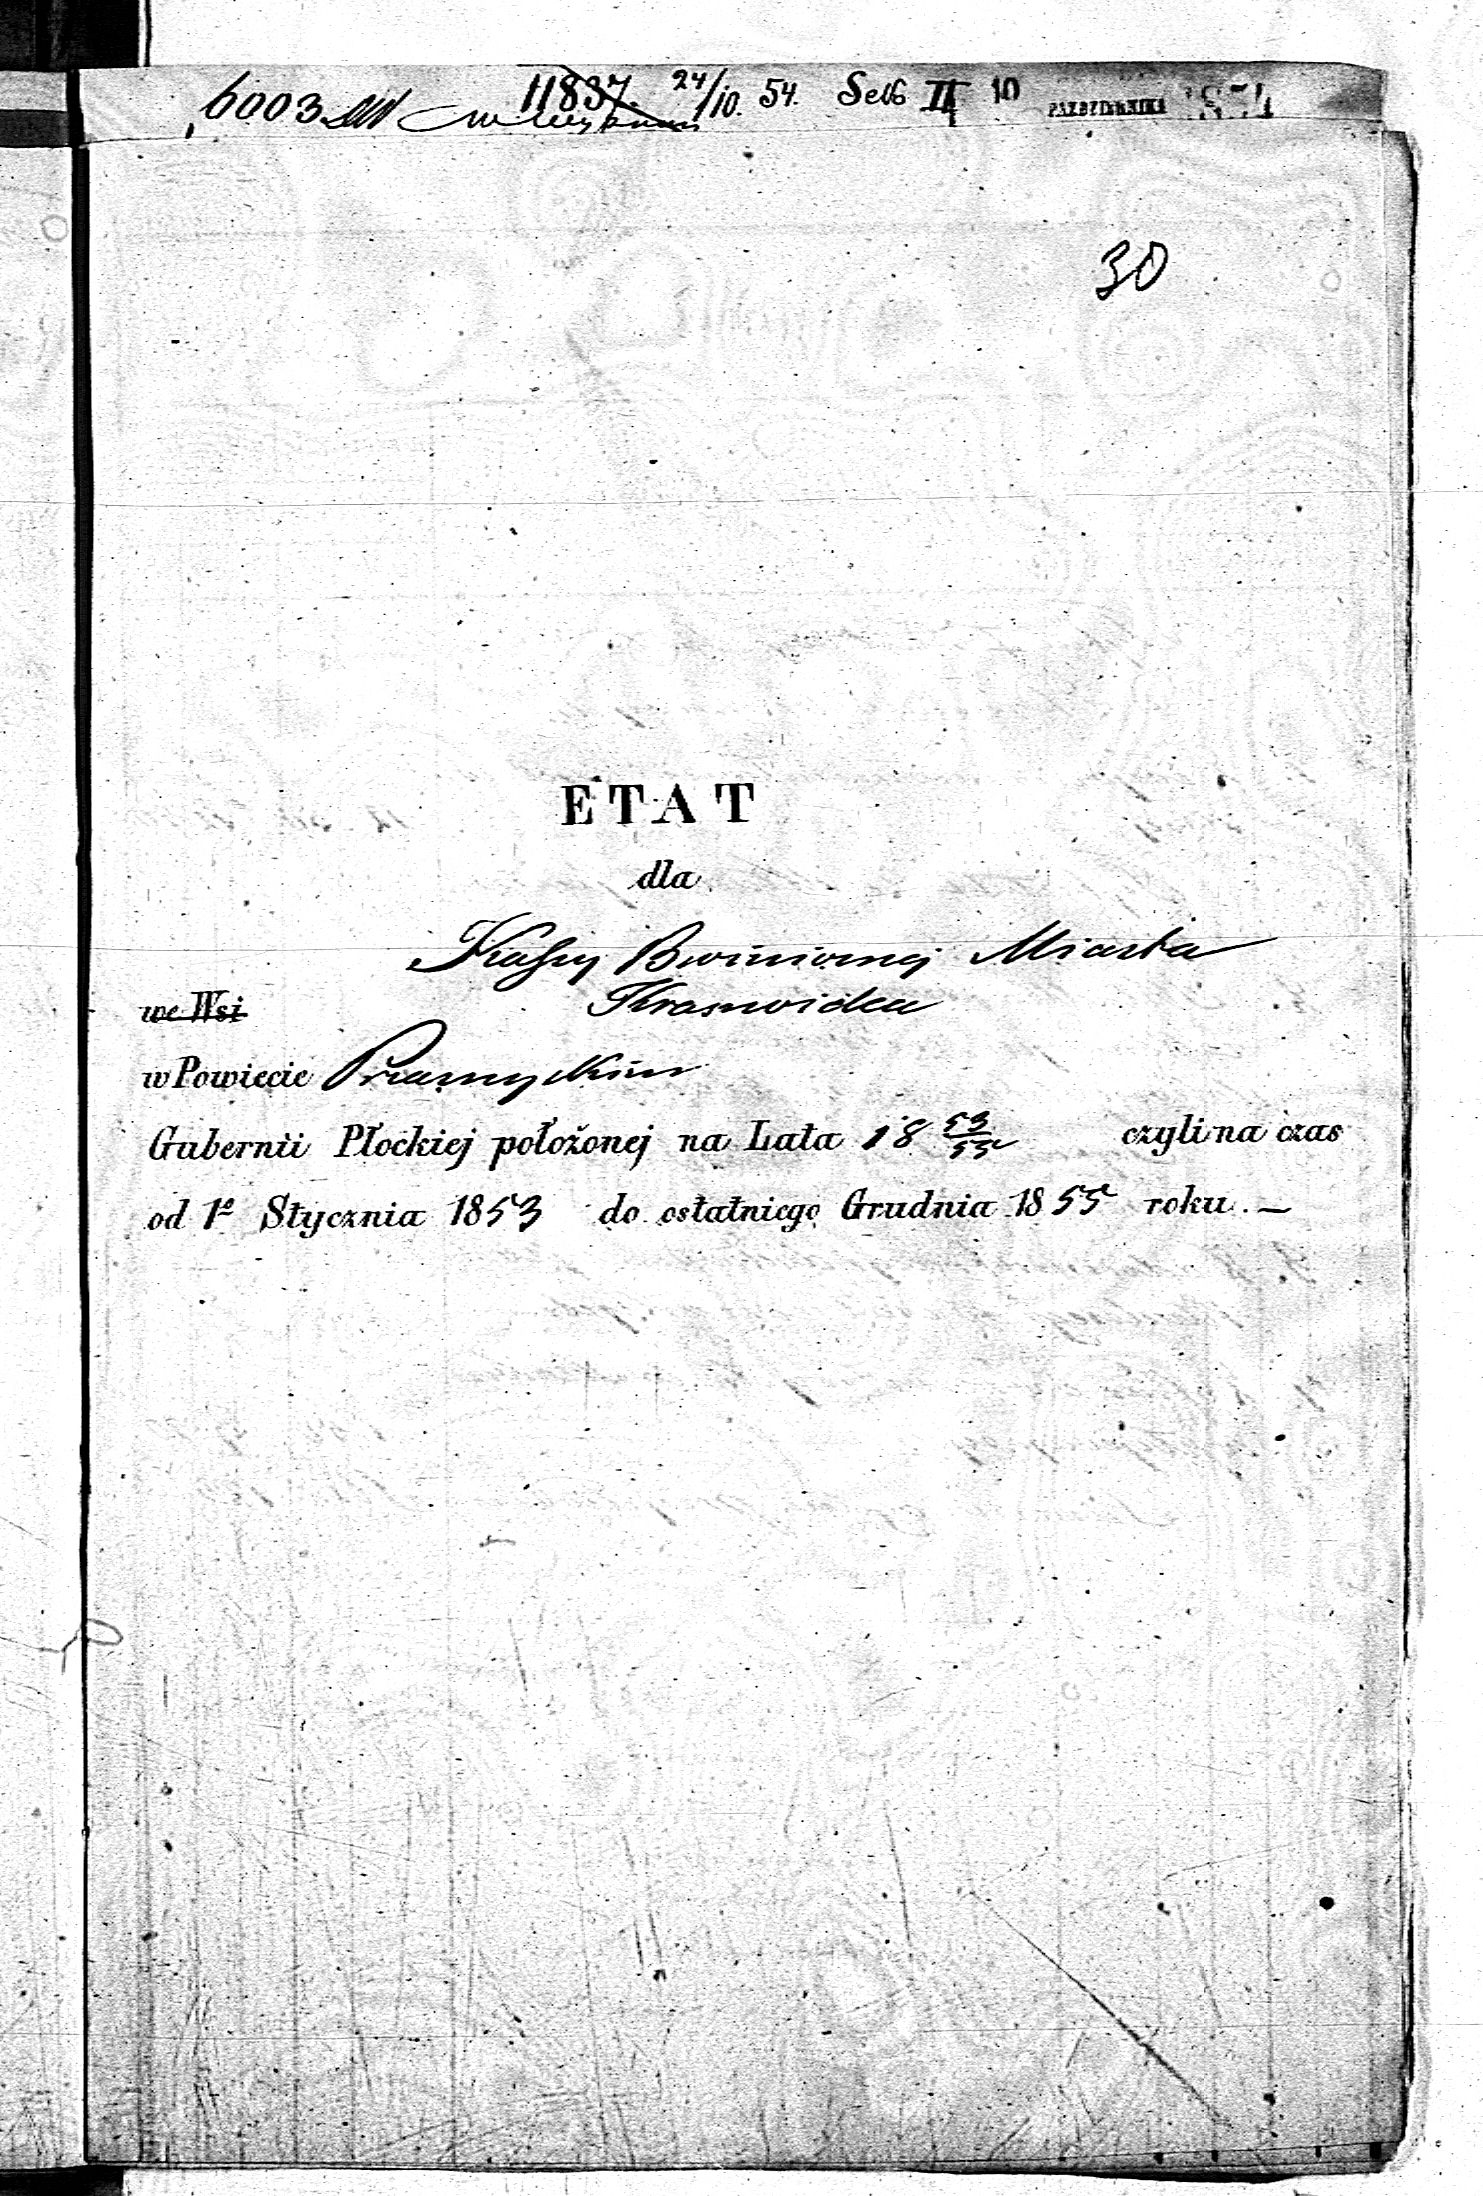 6003 11837. 24/10. 54. Sekc II 10 PAŹDZIERNIKA 1854
30
ETAT
dla
Kassy Bóźnicznej Miasta
we Wsi Krasnosielca
w Powiecie Przasnyskim
Gubernii Płockiej położonej na Lata 18 53/55 czyli na czas
od 1º Stycznia 1853 do ostatniego Grudnia 1855 roku. —